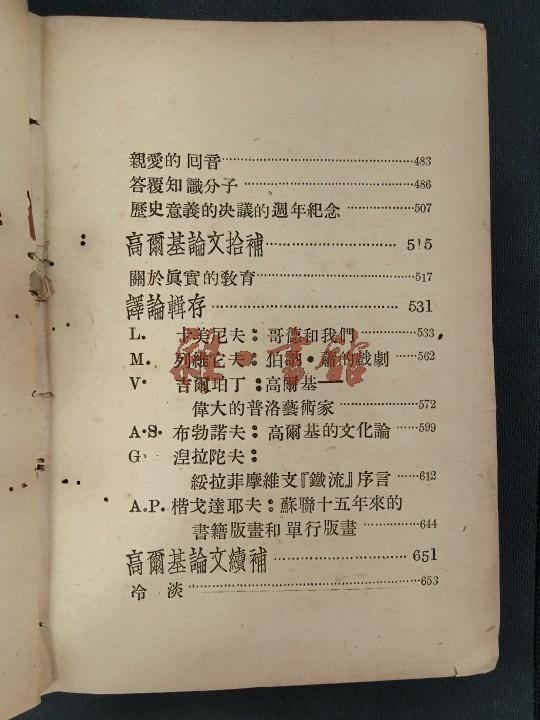 親愛的回音……483
答覆知識分子……486
歷史意義的決議的週年紀念……507
高爾基論文拾補……515
關於眞實的敎育……517
譯論輯存……531
L. 卡美尼夫：哥德和我們……533
M. 列維它夫：伯訥・蕭的戲劇……562
V. 吉爾珀丁：高爾基——
偉大的普洛藝術家……572
A.S. 布勃諾夫：高爾基的文化論……599
G. 湼拉陀夫：
綏拉菲摩維支『鐵流』序言……612
A.P. 楷戈達耶夫：蘇聯十五年來的
書籍版畫和單行版畫……644
高爾基論文續補……651
冷淡……653